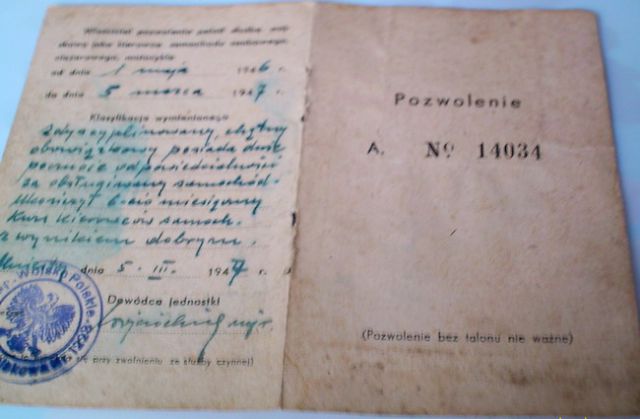 Właściciel pozwolenia pełnił służbę woj-
skową jako kierowca samochodu osobowego,
ciężarowego, motocykla
od dnia 1 maja 1946 r.
do dnia 5 marca 1947 r.
Klasyfikacja wymienionego
Zdyscyplinowany, chętny
obowiązkowy posiada duże
poczucie odpowiedzialności
za obsługiwany samochód.
Ukończył 6-cio miesięczny
Kurs Kierowców samoch.
z wynikiem dobrym.
dnia 5. III. 1947 r.
Dowódca jednostki
mjr.
się przy zwolnieniu ze służby czynnej)
Wojsko Polskie
Pozwolenie
A. Nº 14034
(Pozwolenie bez talonu nie ważne)